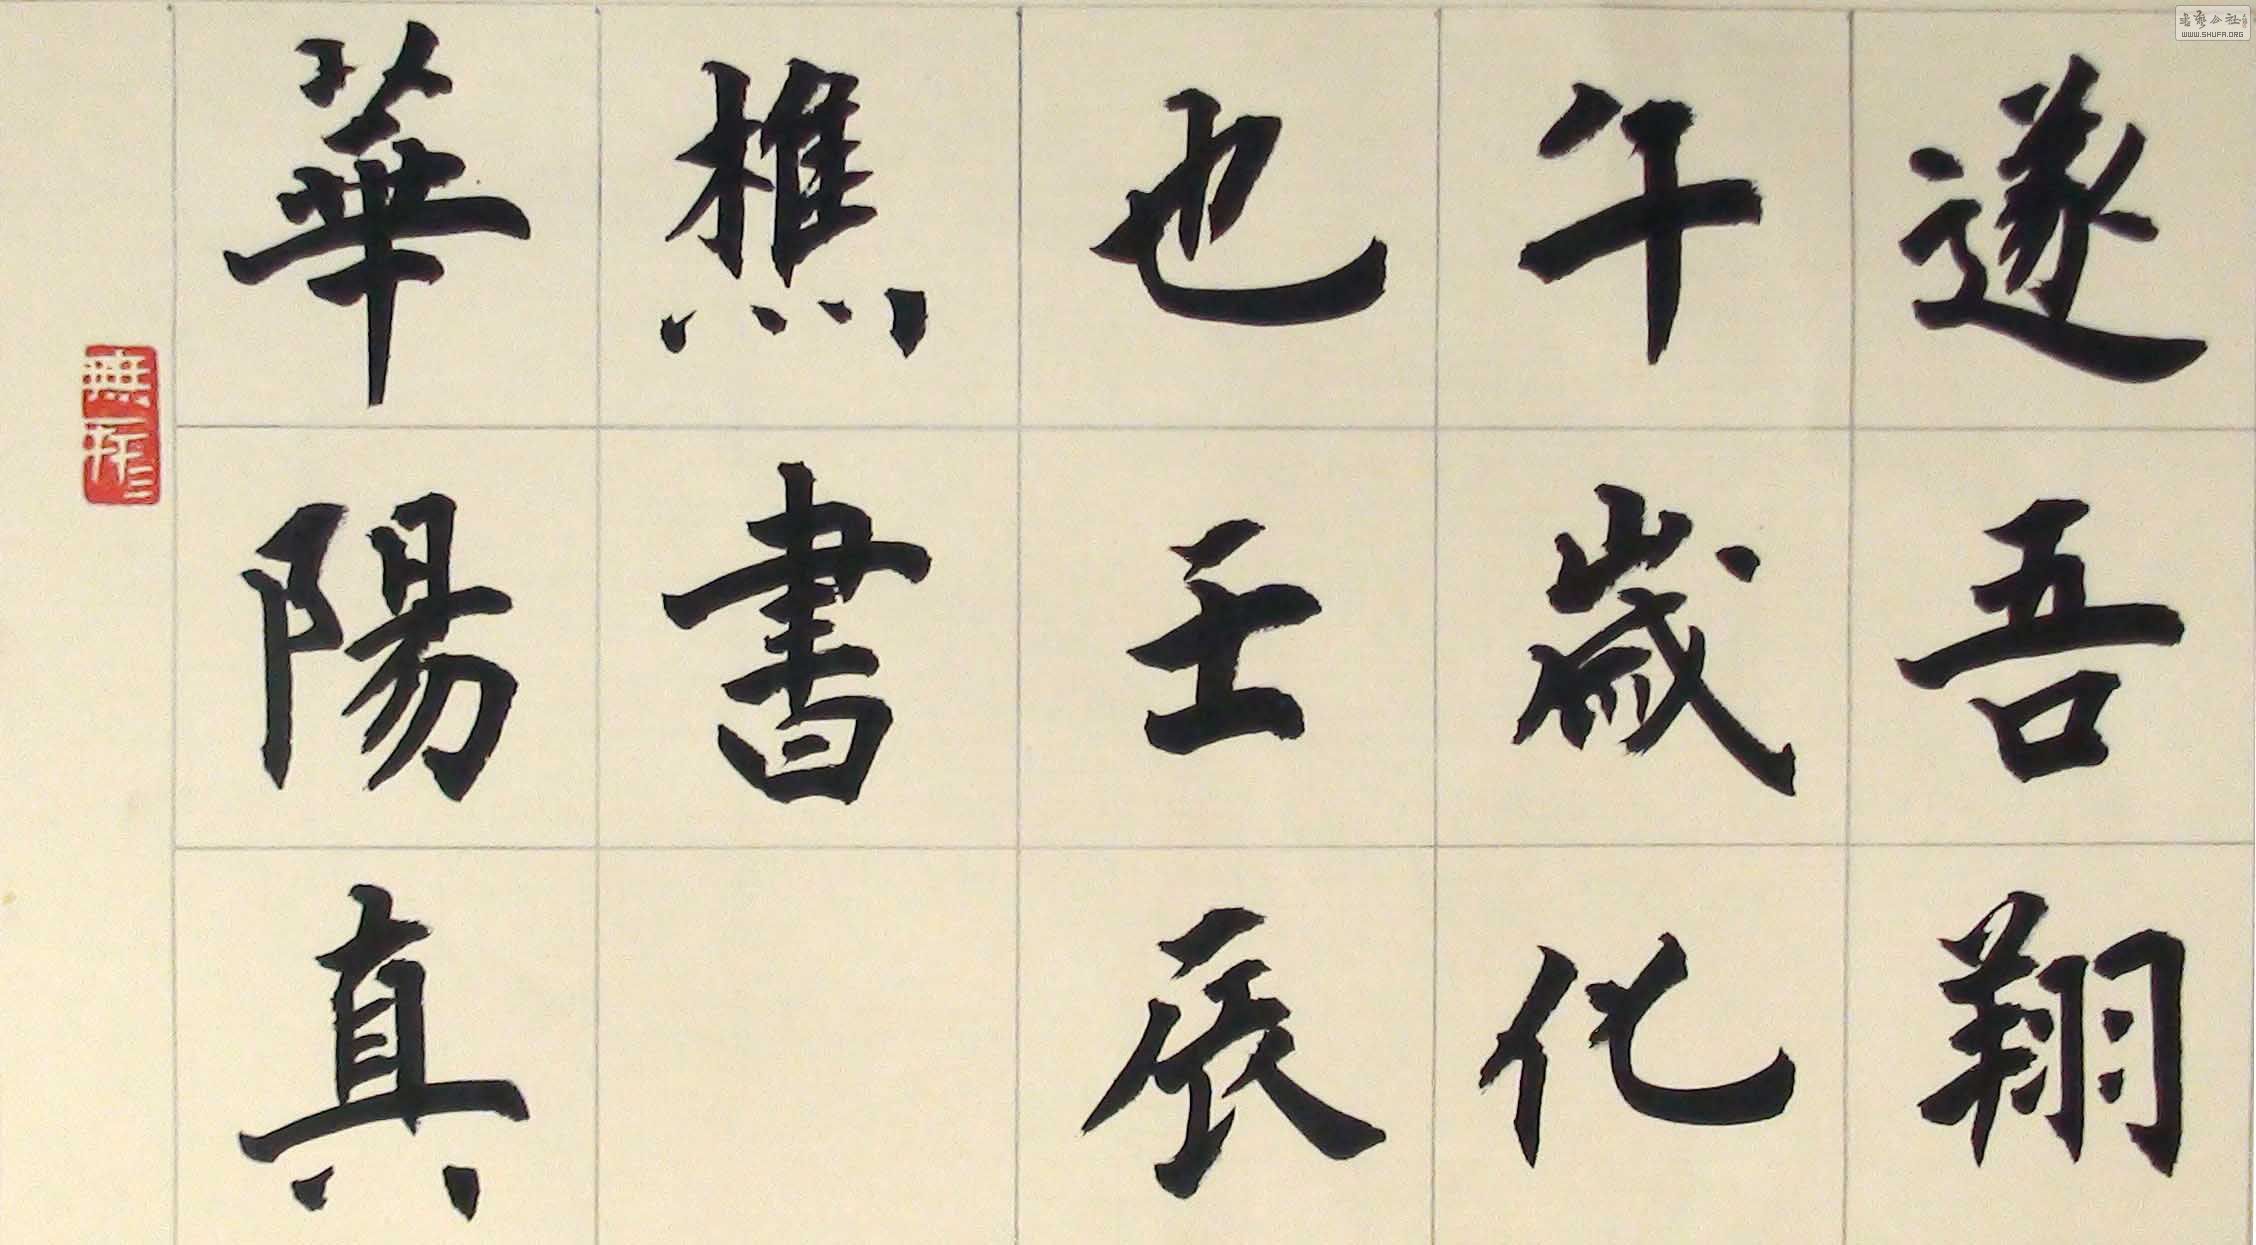 遂吾翔
午歲化
也壬辰
樵書
華陽真
書藝公社
WWW.SHUFA.ORG